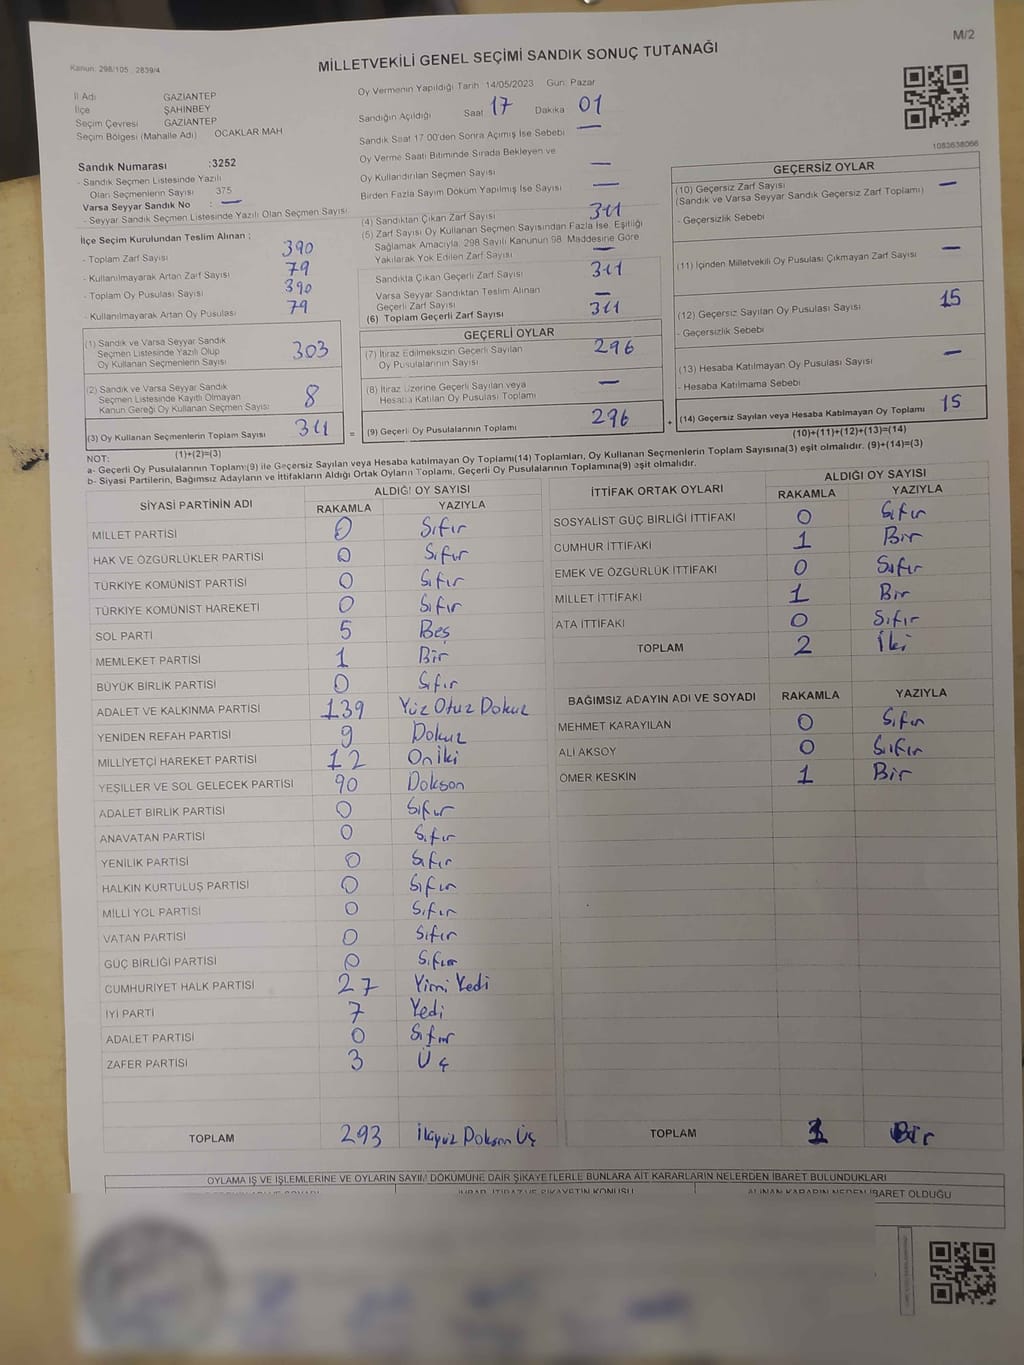 M/2
Kanun: 298/105 2839/4
MİLLETVEKİLİ GENEL SEÇİMİ SANDIK SONUÇ TUTANAĞI
İl Adı GAZİANTEP
İlçe ŞAHİNBEY
Seçim Çevresi GAZİANTEP
Seçim Bölgesi (Mahalle Adı) OCAKLAR MAH
Sandık Numarası :3252
- Sandık Seçmen Listesinde Yazılı
Olan Seçmenlerin Sayısı 375
Varsa Seyyar Sandık No : —
- Seyyar Sandık Seçmen Listesinde Yazılı Olan Seçmen Sayısı
İlçe Seçim Kurulundan Teslim Alınan ;
- Toplam Zarf Sayısı 390
- Kullanılmayarak Artan Zarf Sayısı 79
- Toplam Oy Pusulası Sayısı 390
- Kullanılmayarak Artan Oy Pusulası 79
(1) Sandık ve Varsa Seyyar Sandık
Seçmen Listesinde Yazılı Olup
Oy Kullanan Seçmenlerin Sayısı 303
(2) Sandık ve Varsa Seyyar Sandık
Seçmen Listesinde Kayıtlı Olmayan
Kanun Gereği Oy Kullanan Seçmen Sayısı 8
(3) Oy Kullanan Seçmenlerin Toplam Sayısı 311
(1)+(2)=(3)
Oy Vermenin Yapıldığı Tarih 14/05/2023 Gün: Pazar
Sandığın Açıldığı Saat 17 Dakika 01
Sandık Saat 17.00'den Sonra Açılmış İse Sebebi —
Oy Verme Saati Bitiminde Sırada Bekleyen ve
Oy Kullandırılan Seçmen Sayısı —
Birden Fazla Sayım Döküm Yapılmış İse Sayısı —
(4) Sandıktan Çıkan Zarf Sayısı 311
(5) Zarf Sayısı Oy Kullanan Seçmen Sayısından Fazla İse, Eşitliği
Sağlamak Amacıyla, 298 Sayılı Kanunun 98. Maddesine Göre
Yakılarak Yok Edilen Zarf Sayısı —
Sandıkta Çıkan Geçerli Zarf Sayısı 311
Varsa Seyyar Sandıktan Teslim Alınan
Geçerli Zarf Sayısı —
(6) Toplam Geçerli Zarf Sayısı 311
GEÇERLİ OYLAR
(7) İtiraz Edilmeksizin Geçerli Sayılan
Oy Pusulalarının Sayısı 296
(8) İtiraz Üzerine Geçerli Sayılan veya
Hesaba Katılan Oy Pusulası Toplamı —
= (9) Geçerli Oy Pusulalarının Toplamı 296
1083638066
GEÇERSİZ OYLAR
(10) Geçersiz Zarf Sayısı —
(Sandık ve Varsa Seyyar Sandık Geçersiz Zarf Toplamı)
- Geçersizlik Sebebi
(11) İçinden Milletvekili Oy Pusulası Çıkmayan Zarf Sayısı —
(12) Geçersiz Sayılan Oy Pusulası Sayısı 15
- Geçersizlik Sebebi
(13) Hesaba Katılmayan Oy Pusulası Sayısı —
- Hesaba Katılmama Sebebi
+ (14) Geçersiz Sayılan veya Hesaba Katılmayan Oy Toplamı 15
(10)+(11)+(12)+(13)=(14)
NOT:
a- Geçerli Oy Pusulalarının Toplamı(9) ile Geçersiz Sayılan veya Hesaba katılmayan Oy Toplamı(14) Toplamları, Oy Kullanan Seçmenlerin Toplam Sayısına(3) eşit olmalıdır. (9)+(14)=(3)
b- Siyasi Partilerin, Bağımsız Adayların ve İttifakların Aldığı Ortak Oyların Toplamı, Geçerli Oy Pusulalarının Toplamına(9) eşit olmalıdır.
SİYASİ PARTİNİN ADI ALDIĞI OY SAYISI
RAKAMLA YAZIYLA
MİLLET PARTİSİ 0 Sıfır
HAK VE ÖZGÜRLÜKLER PARTİSİ 0 Sıfır
TÜRKİYE KOMÜNİST PARTİSİ 0 Sıfır
TÜRKİYE KOMÜNİST HAREKETİ 0 Sıfır
SOL PARTİ 5 Beş
MEMLEKET PARTİSİ 1 Bir
BÜYÜK BİRLİK PARTİSİ 0 Sıfır
ADALET VE KALKINMA PARTİSİ 139 Yüz Otuz Dokuz
YENİDEN REFAH PARTİSİ 9 Dokuz
MİLLİYETÇİ HAREKET PARTİSİ 12 On iki
YEŞİLLER VE SOL GELECEK PARTİSİ 90 Dokson
ADALET BİRLİK PARTİSİ 0 Sıfır
ANAVATAN PARTİSİ 0 Sıfır
YENİLİK PARTİSİ 0 Sıfır
HALKIN KURTULUŞ PARTİSİ 0 Sıfır
MİLLİ YOL PARTİSİ 0 Sıfır
VATAN PARTİSİ 0 Sıfır
GÜÇ BİRLİĞİ PARTİSİ 0 Sıfır
CUMHURİYET HALK PARTİSİ 27 Yirmi Yedi
İYİ PARTİ 7 Yedi
ADALET PARTİSİ 0 Sıfır
ZAFER PARTİSİ 3 Üç
TOPLAM 293 İkiyüz Doksan Üç
İTTİFAK ORTAK OYLARI ALDIĞI OY SAYISI
RAKAMLA YAZIYLA
SOSYALİST GÜÇ BİRLİĞİ İTTİFAKI 0 Sıfır
CUMHUR İTTİFAKI 1 Bir
EMEK VE ÖZGÜRLÜK İTTİFAKI 0 Sıfır
MİLLET İTTİFAKI 1 Bir
ATA İTTİFAKI 0 Sıfır
TOPLAM 2 İki
BAĞIMSIZ ADAYIN ADI VE SOYADI RAKAMLA YAZIYLA
MEHMET KARAYILAN 0 Sıfır
ALİ AKSOY 0 Sıfır
ÖMER KESKİN 1 Bir
TOPLAM 1 Bir
OYLAMA İŞ VE İŞLEMLERİNE VE OYLARIN SAYIM DÖKÜMÜNE DAİR ŞİKAYETLERLE BUNLARA AİT KARARLARIN NELERDEN İBARET BULUNDUKLARI
İHBAR, İTİRAZ VE ŞİKAYETİN KONUSU ALINAN KARARIN NEDEN İBARET OLDUĞU